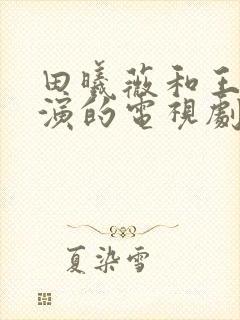 田曦薇和王
演的電視劇
夏染雪